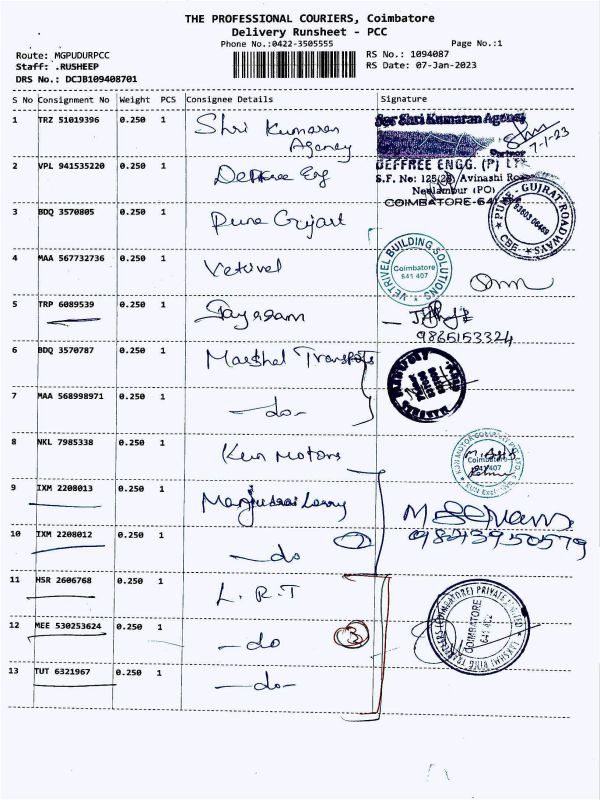 THE PROFESSIONAL COURIERS, Coimbatore
Delivery Runsheet - PCC
Phone No.:0422-3505555
Page No.:1
Route: MGPUDURPCC
RS No.: 1094087
Staff: .RUSHEEP
RS Date: 07-Jan-2023
DRS No.: DCJB109408701
S No Consignment No Weight PCS Consignee Details Signature
1 TRZ 51019396 0.250 1 Shri Kumaran Agency
For Shri Kumaran Agency
Partner
7-1-23
2 VPL 941535220 0.250 1 Deffree Eng
DEFFREE ENGG. (P) LTD
S.F. No: 125/2B, Avinashi Road
Neelambur (PO)
COIMBATORE-641
3 BDQ 3570805 0.250 1 Pune Gujart
PUNE - GUJRAT ROADWAYS
CBE
4 MAA 567732736 0.250 1 Vetrivel
VETRIVEL BUILDING SOLUTIONS
Coimbatore
641 407
5 TRP 6089539 0.250 1
9865153324
6 BDQ 3570787 0.250 1 Marshal Transports
7 MAA 568998971 0.250 1 -do-
8 NKL 7985338 0.250 1 Kun Motors
Coimbatore
641407
9 IXM 2208013 0.250 1 Lorry
10 IXM 2208012 0.250 1 -do 2
11 HSR 2606768 0.250 1 L.R.T
12 MEE 530253624 0.250 1 -do 3
13 TUT 6321967 0.250 1 -do-
LAKSHMI RING TRAVELLERS (COIMBATORE) PRIVATE LIMITED
COIMBATORE
641 402